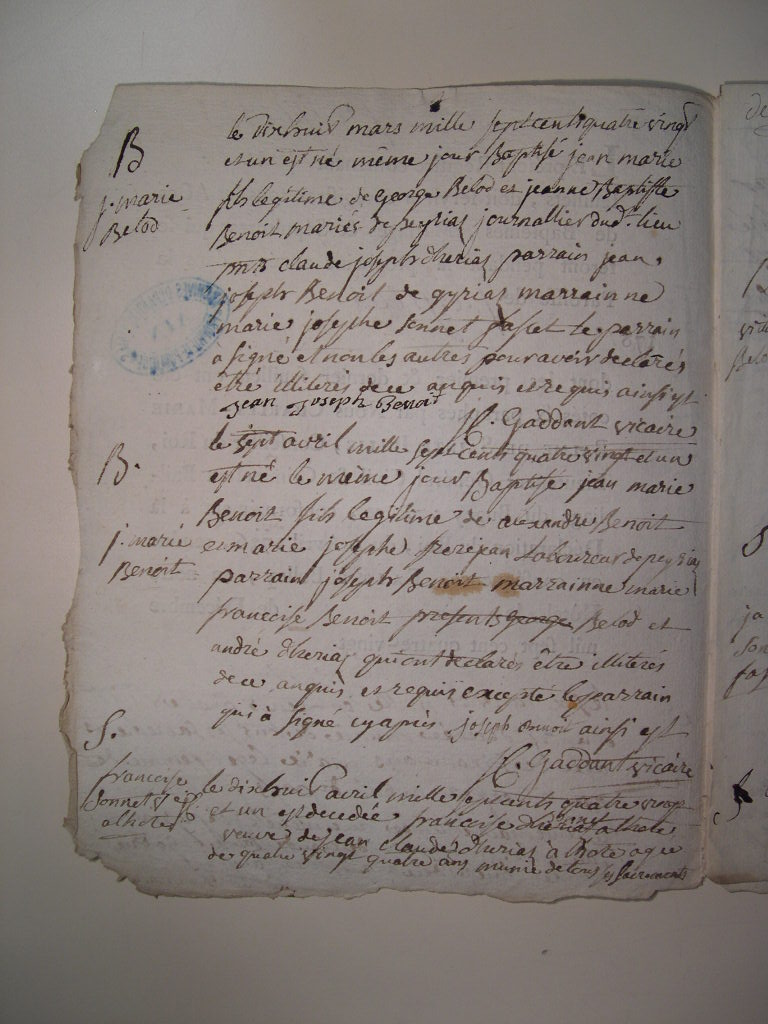 B
j. marie
Belod
le dixhuit mars mille sept cent quatre vingt
et un est né même jour Baptisé jean marie
fils legitime de George Belod et jeanne Baptiste
Benoit mariés de peyrias journallier dud. lieu
claude joseph dherias parrain jean
joseph Benoit de gyrias marrainne
marie josephe sonnet le parrain
a signé et non les autres pour avoir declarés
être illiterés de ce anquis et requis ainsi est
jean joseph Benoit
Gaddant vicaire
B.
j. marie
Benoit
le sept avril mille sept cents quatre vingt et un
est né le même jour Baptisé jean marie
Benoit fils legitime de alexandre Benoit
et marie josephe frerejean laboureur de peyrias
parrain joseph Benoit marrainne marie
francoise Benoit presents George Belod et
andré dherias qui ont declarés être illiterés
de ce anquis et requis excepté le parrain
qui à signé cy après joseph Benoit ainsi est
Gaddant vicaire
S.
francoise
sonnet
alhote
le dixhuit avril mille sept cents quatre vingt
et un est decedée francoise sonnet alhote
veuve de jean claude dherias à lhote agée
de quatre vingt quatre ans munie de tous ses sacrements